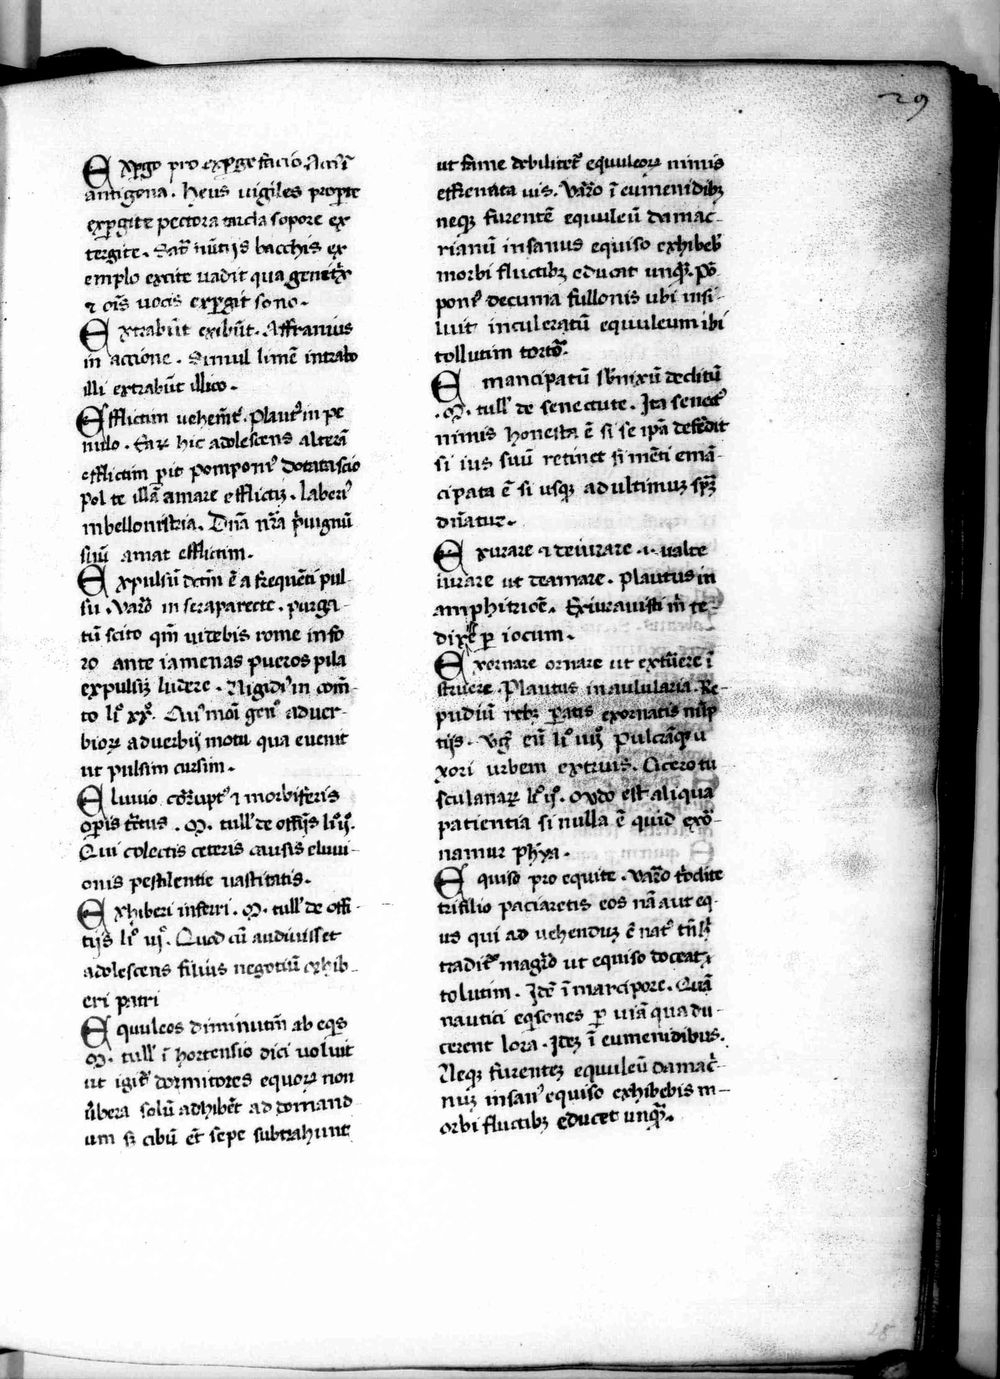 29
Exꝑgo pro exꝑge facio Acci᷒ ī
antigona. heus uigiles proꝑte
exꝑgite pectora tarda sopore ex
tergite. Sat᷒ nūtijs bacchis ex
emplo excite uadit qua genetx̄
⁊ oīs uocis exꝑgit sono.
Extrabūt exibūt. Affranius
in accione. Simul limē intrabo
illi extrabūt illico.
Efflictim uehemēt᷒. Plaut᷒ in pe
nulo. Eaꝝ hic adolescens alterā
efflictim ꝑit pomponi᷒ Dotata scio
pol te illā amare efflictiȝ. laberi᷒
in bellonistria. Dnā nr̄a p̄uignū
suū amat efflictim.
Expulsū dctm̄ ē a frequēti pul-
su. Varo᷒ in seraparecte. purga-
tū scito qm̄ uidebis rome info
ro ante iamenas pueros pila
expulsiȝ ludere. Nigidi᷒ in com̄-
to li° xx°. Qui᷒ moī gen᷒ aduer-
bioꝝ aduerbij motu qua euenit
ut pulsim cursim.
Eluuio cōrupt᷒ ⁊ morbiferis
oꝑis tc̄tus. M. tull᷒ de offijs li° ij°.
Qui colectis ceteris causis eluui-
onis pestilentie uastitatis.
Exhiberi inferri. M. tull᷒ de offi-
tijs li° iij°. Quod cū audiuisset
adolescens filius negotiū exhib-
eri patri
Equuleos diminutim̄ ab eqs
M. tull᷒ ī hortensio dici uoluit
ut igit᷒ domitores equoꝝ non
ūbera solū adhibēt ad domand-
um sȝ cibū et̄ sepe subtrahunt
ut fame debilitet᷒ equuleoꝝ nimis
effrenata uis. Varo᷒ ī eumenidibȝ
neqȝ furentē equuleū damac-
rianū insanus equiso exhibeb᷒
morbi fluctibȝ educat unqȝ. Po᷒-
poni᷒ decuma fullonis ubi insi-
luit inculeratū equuleum ibi
tollutim torto᷒.
Emancipatū sb̄nixū declitū
.M. tull᷒ de senectute. Ita senect᷒
nimis honesta ē si se ipā defēdit
si ius suū retinet si mēti emā-
cipata ē si usqȝ ad ultimuȝ spȝ
dn̄atur.
Exiurare ⁊ deiurare .i. ualte
iurare ut deamare. plautus in
amphitrioē. Exiurauisti m̄ te
dixe᷒ ꝑ iocum.
Exornare ornare ut extūere ī
struere. Plautus in aulularia. Re-
pudiū rebȝ ꝑatis exornatis nup
tijs. Vg᷒ eni᷒ li° iiij° pulcrāqȝ u
xori urbem extruis. Cicero tu
sculanaꝝ li° ij°. Modo est aliqua
patientia si nulla ē quid exo᷒-
namur phȳa.
Equiso pro equite. Varo᷒ tōdite
trifilio paciaretis eos nā aut eq-
us qui ad uehenduȝ ē nat᷒ tn̄ h᷒
tradit᷒ magrō ut equiso doceat᷒
tolutim. Idē ī marcipore. Quā
nautici eqsones ꝑ uiā qua du-
cerent lora. Ideȝ ī eumenidibus.
Neqȝ furenteȝ equuleū damac᷒-
nuȝ insan᷒ equiso exhibebis m-
orbi fluctibȝ educet unqȝ.
28